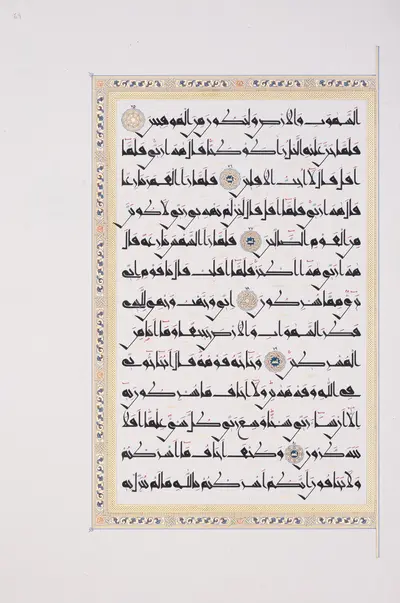 السموت والارض وليكون من الموقنين
فلما جن عليه اليل را كوكبا قال هذا ربي فلما
افل قال لا احب الافلين فلما را القمر بازغا
قال هذا ربي فلما افل قال لئن لم يهدني ربي لاكونن
من القوم الضالين فلما را الشمس بازغة قال
هذا ربي هذا اكبر فلما افلت قال يا قوم اني
بريء مما تشركون اني وجهت وجهي للذي
فطر السموات والارض حنيفا وما انا من
المشركين وحاجه قومه قال اتحاجوني
في الله وقد هدان ولا اخاف ما تشركون به
الا ان يشاء ربي شيئا وسع ربي كل شيء علما افلا
تتذكرون وكيف اخاف ما اشركتم
ولا تخافون انكم اشركتم بالله ما لم ينزل به